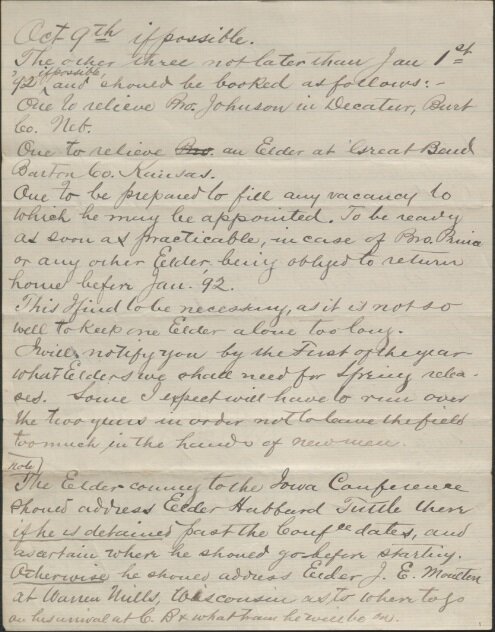 Oct 9th if possible.
The other three not later than Jan 1st
'92 if possible, and should be booked as follows:-
One to relieve Bro. Johnson in Decatur, Burt
Co. Neb.
One to relieve Bro. an Elder at Great Bend
Barton Co. Kansas.
One to be prepared to fill any vacancy to
which he may be appointed. To be ready
as soon as practicable, in case of Bro. Prince
or any other Elder being obliged to return
home before Jan. '92.
This I find to be necessary, as it is not so
well to keep one Elder alone too long.
I will notify you by the First of the year
what Elders we shall need for Spring relea-
ses. Some I expect will have to run over
the two years in order not to leave the field
too much in the hands of new men.
Note)
The Elder coming to the Iowa Conference
should address Elder Hubbard Tuttle there
if he is detained past the Confce dates, and
ascertain where he should go before starting.
Otherwise he should address Elder J. E. Moulton
at Warren Mills, Wisconsin as to where to go
on his arrival at C. B. & what train he will be on.